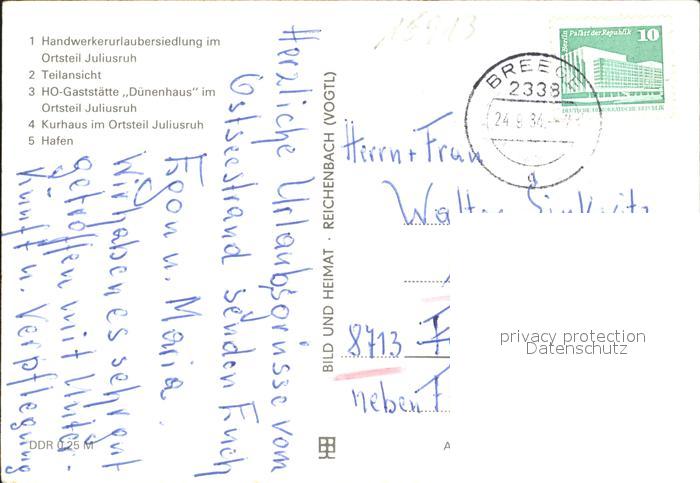 1 Handwerkerurlaubersiedlung im
Ortsteil Juliusruh
2 Teilansicht
3 HO-Gaststätte „Dünenhaus" im
Ortsteil Juliusruh
4 Kurhaus im Ortsteil Juliusruh
5 Hafen
Herzliche Urlaubsgrüsse vom
Ostseestrand senden Euch
Egon u. Maria.
Wir haben es sehr gut
getroffen mit Unter-
kunft u. Verpflegung
DDR 0,25 M
BILD UND HEIMAT · REICHENBACH (VOGTL)
Berlin Palast der Republik 10
DEUTSCHE DEMOKRATISCHE REPUBLIK
BREEGE
2338
24.8.84
g
Herrn + Frau
Walter
8713
neben
A
privacy protection
Datenschutz